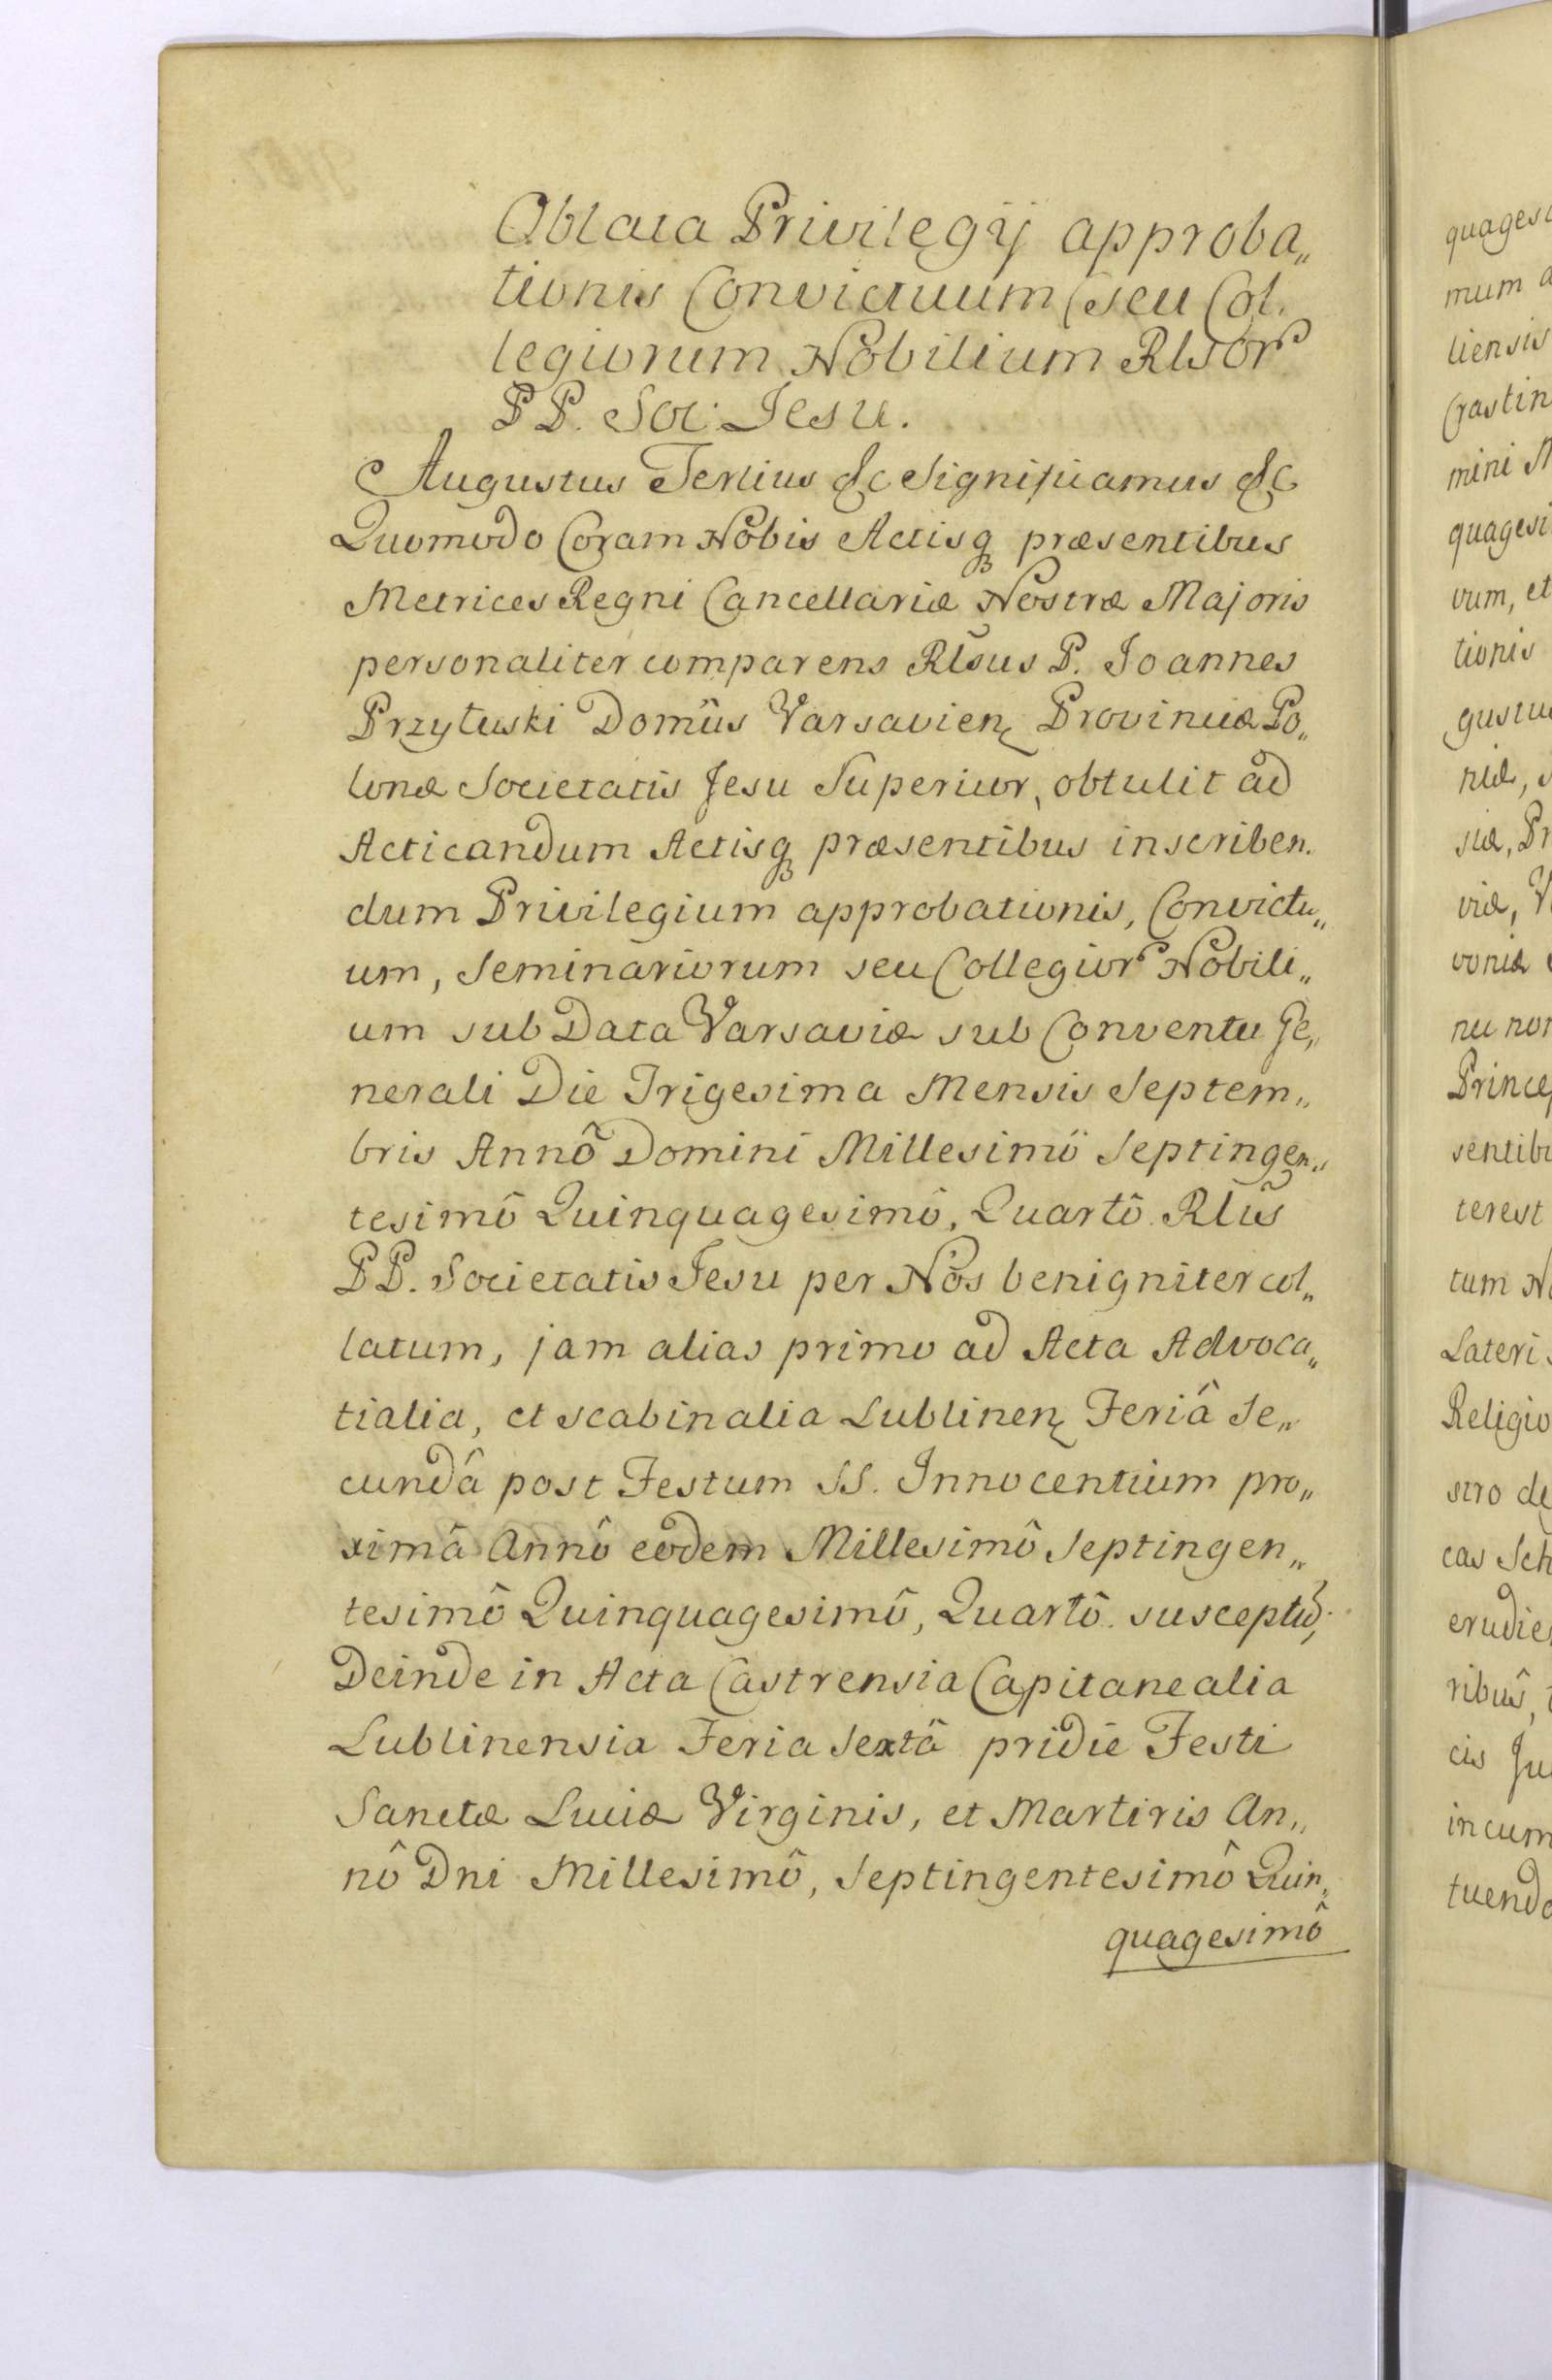 Oblata Privilegij approba„
tionis Convictuum seu Col.
legiorum Nobilium Rlsor
PP. Soc: Jesu.
Augustus Tertius &c Significamus &c
Quomodo Coram Nobis Actisq præsentibus
Metrices Regni Cancellariæ Nostræ Majoris
personaliter comparens Rlsus P. Joannes
Przyłuski Domûs Varsavien Provinciæ Po„
lonæ Societatis Jesu Superior, obtulit ad
Acticandum Actisq præsentibus inscriben.
dum Privilegium approbationis, Convictu„
um, Seminariorum seu Collegior Nobili„
um sub Data Varsaviæ sub Conventu Ge„
nerali Die Trigesima Mensis Septem„
bris Annô Domini Millesimô Septingen„
tesimô Quinquagesimô, Quartô. Rlis
PP. Societatis Jesu per Nos benigniter col„
latum, jam alias primo ad Acta Advoca„
tialia, et scabinalia Lublinen Feriâ Se„
cundâ post Festum SS. Innocentium pro„
ximâ Annô eodem Millesimô Septingen„
tesimô Quinquagesimô, Quartô. susceptũ,
Deinde in Acta Castrensia Capitanealia
Lublinensia Feria Sextâ pridie Festi
Sanctæ Luciæ Virginis, et Martiris An„
nô Dni Millesimô, Septingentesimô Quin„
quagesimô
mum
liensis
Crastin
mini M
quagesi
vum, et
tionis
niæ,
siæ, Pr
viæ, V
voniæ
nu non
Princep
sentibu
terest
tum No
Lateri
Religio
stro de
cas Sch
erudie
ribus,
cis Ju
incum
tuendo